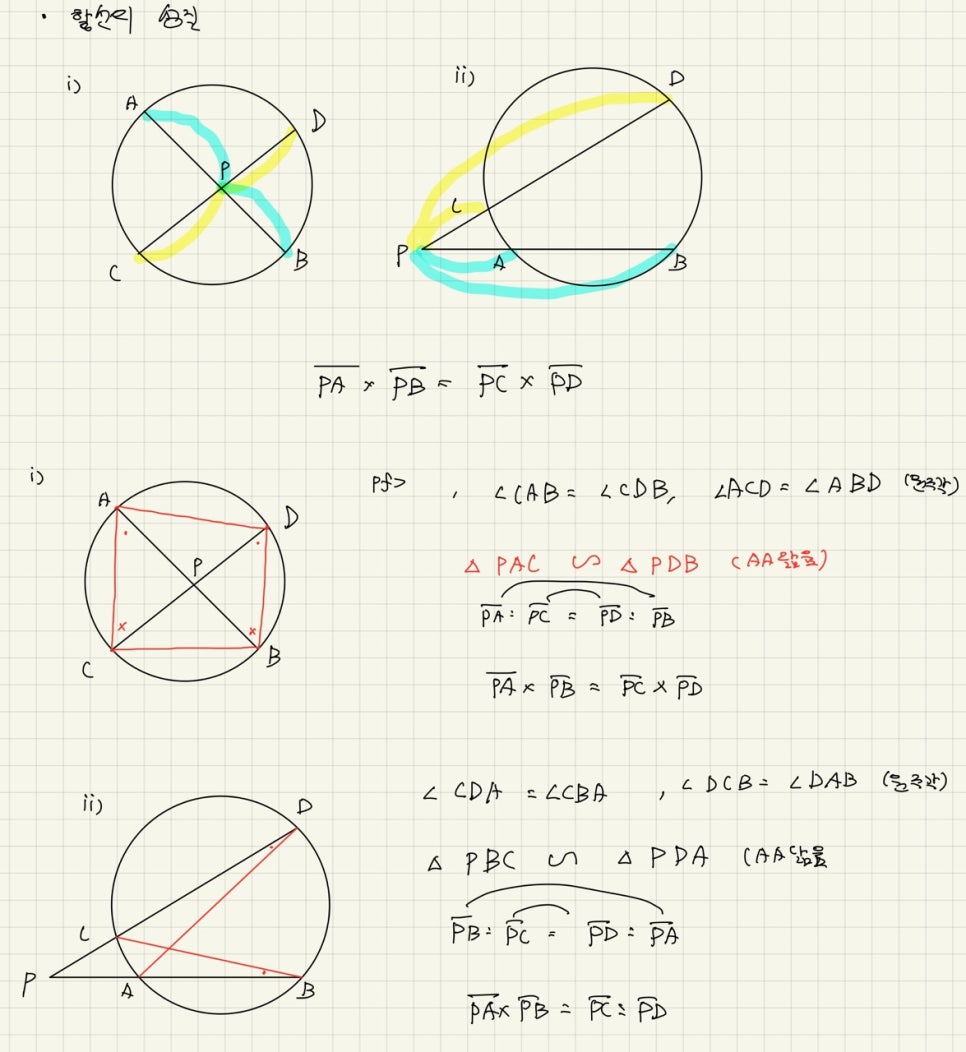 • 할선의 성질
i)
A
D
P
C
B
ii)
D
C
P
A
B
PA × PB = PC × PD
i)
A
D
P
C
B
pf> , ∠CAB = ∠CDB, ∠ACD = ∠ABD (원주각)
△ PAC ∽ △ PDB (AA닮음)
PA : PC = PD : PB
PA × PB = PC × PD
ii)
D
C
P
A
B
∠CDA = ∠CBA , ∠DCB = ∠DAB (원주각)
△ PBC ∽ △ PDA (AA닮음
PB : PC = PD : PA
PA × PB = PC : PD